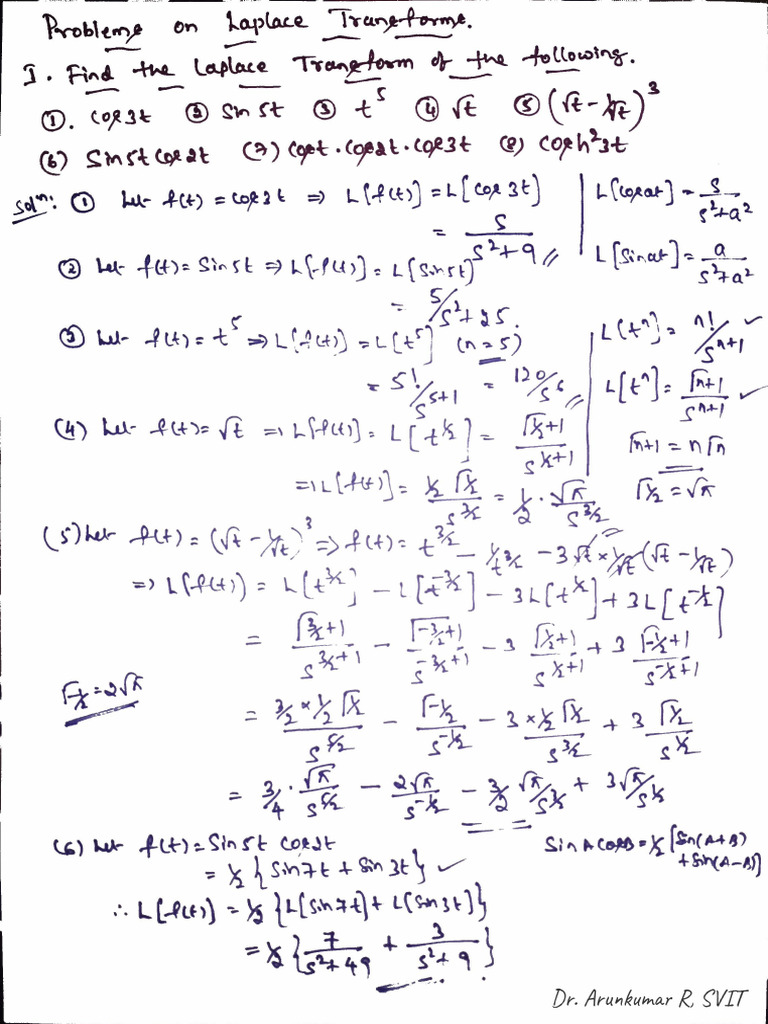 Problems on Laplace Transforms.
I. Find the Laplace Transform of the following.
①. cos3t ② Sin5t ③ t⁵ ④ √t ⑤ (√t - 1/√t)³
(6) Sin5t cos2t (7) cost·cos2t·cos3t (8) cosh²3t
Solⁿ: ① Let f(t) = cos3t ⇒ L[f(t)] = L[cos3t]
= s/(s²+9) //
L[cosat] = s/(s²+a²)
L[Sinat] = a/(s²+a²)
② Let f(t) = Sin5t ⇒ L[f(t)] = L[Sin5t]
= 5/s²+25.
③ Let f(t) = t⁵ ⇒ L[f(t)] = L[t⁵] (n=5)
= 5!/s⁵⁺¹ = 120/s⁶ //
L(tⁿ) = n!/sⁿ⁺¹ ✓
L[tⁿ] = Γn+1/sⁿ⁺¹ ✓
Γn+1 = nΓn
Γ½ = √π
(4) Let f(t) = √t ⇒ L[f(t)] = L[t^½] = Γ½+1/s^(½+1)
⇒ L[f(t)] = ½ Γ½/s^(3/2) = ½ · √π/s^(3/2) //
(5) Let f(t) = (√t - 1/√t)³ ⇒ f(t) = t^(3/2) - 1/t^(3/2) - 3√t × 1/√t (√t - 1/√t)
⇒ L[f(t)] = L[t^(3/2)] - L[t^(-3/2)] - 3L[t^(½)] + 3L[t^(-½)]
= Γ3/2+1/s^(3/2+1) - Γ-3/2+1/s^(-3/2+1) - 3 Γ½+1/s^(½+1) + 3 Γ-½+1/s^(-½+1)
Γ-½ = 2√π
= 3/2 × ½ Γ½/s^(5/2) - Γ-½/s^(-½) - 3 × ½ Γ½/s^(3/2) + 3 Γ½/s^(½)
= 3/4 · √π/s^(5/2) - 2√π/s^(-½) - 3/2 √π/s^(3/2) + 3√π/s^(½)
(6) Let f(t) = Sin5t cos2t
= ½ {Sin7t + Sin3t} ✓
SinA cosB = ½ [Sin(A+B)
+ Sin(A-B)]
∴ L[f(t)] = ½ {L[Sin7t] + L[Sin3t]}
= ½ {7/(s²+49) + 3/(s²+9)}
Dr. Arunkumar R, SVIT